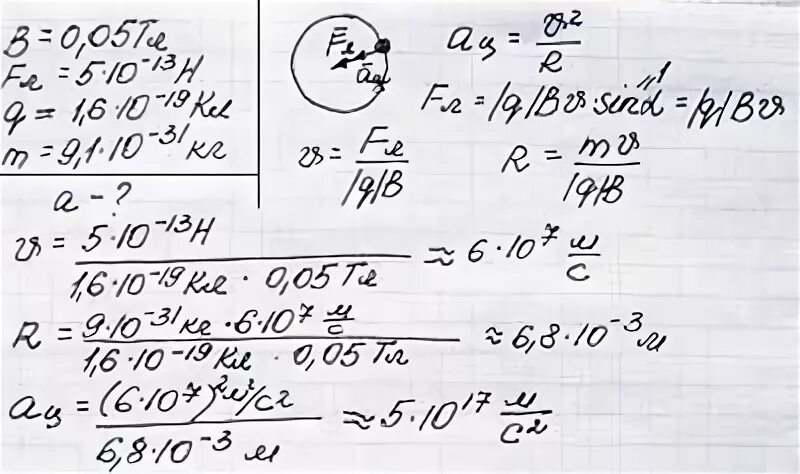 B = 0,05Тл
Fл = 5·10⁻¹³ Н
q = 1,6·10⁻¹⁹ Кл
m = 9,1·10⁻³¹ кг
a - ?
F̄л
āц
aц = υ²/R
Fл = |q|Bυ·sinα = |q|Bυ
1
υ = Fл/|q|B
R = mυ/|q|B
υ = 5·10⁻¹³ Н / 1,6·10⁻¹⁹ Кл · 0,05 Тл ≈ 6·10⁷ м/с
R = 9·10⁻³¹ кг · 6·10⁷ м/с / 1,6·10⁻¹⁹ Кл · 0,05 Тл ≈ 6,8·10⁻³ м
aц = (6·10⁷)² м²/с² / 6,8·10⁻³ м ≈ 5·10¹⁷ м/с²